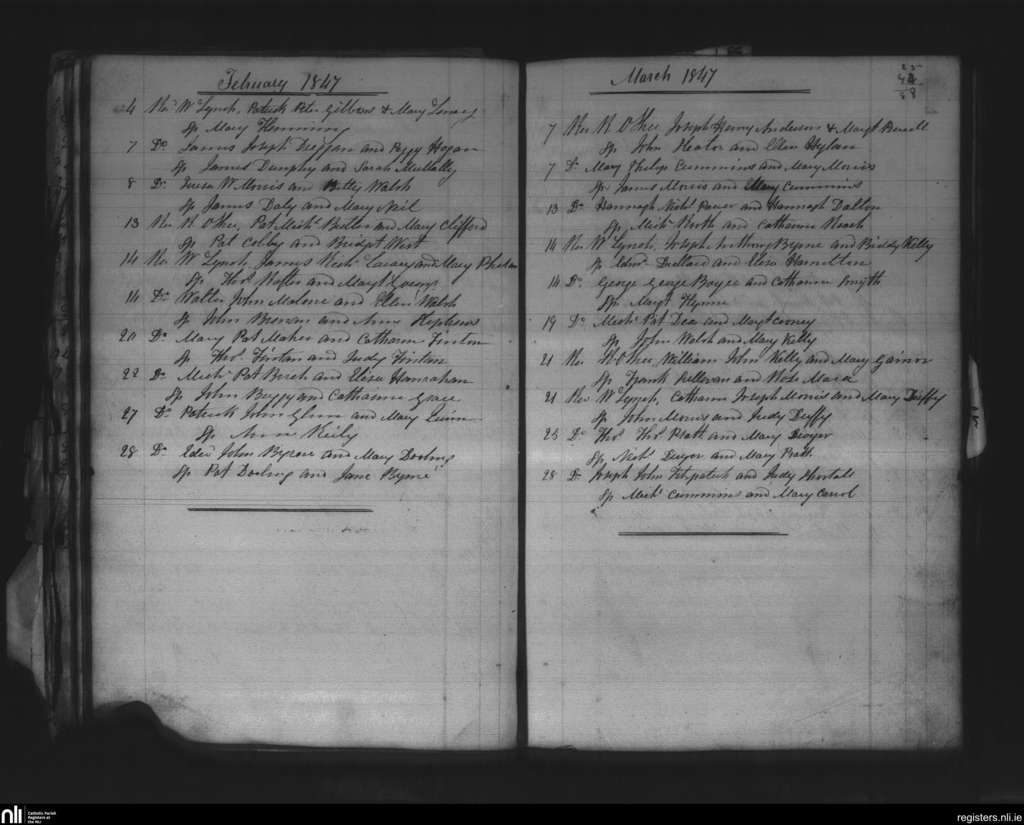 February 1847
4 Revd W Lynch, Patrick Peter Gibbons & Mary
Sp Mary Flemming
7 Do James Joseph and Peggy Hogan
Sp James Dunphy and Sarah Mullally
8 Do Teresa W. Morris an Betty Walsh
Sp James Daly and Mary Neil
13 Rev N O Shee, Pat Michl Butler and Mary Clifford
Sp Pat Colby and Bridget West
14 Rev W Lynch, James Michl and Mary Phelan
Sp Thos and Margt
14 Do Walter John Malone and Ellen Walsh
Sp John Brenan and Ann
20 Do Mary Pat Maher and Catharn Fintan
Sp Thos Fintan and Judy Fintan
22 Do Michl Pat Birch and Eliza Hanrahan
Sp John Beggy and Catharine Grace
27 Do Patrick John Glynn and Mary Quinn
Sp Anne Kiely
28 Do John Byrne and Mary Dowling
Sp Pat Dowling and Jane Byrne
March 1847
7 Rev N O Shee, Joseph Henry Anderson & Margt
Sp John Hector and Ellen Hylan
7 Do Mary Philip Cummins and Mary Morris
Sp James Morris and Mary Cummins
13 Do Hannagh Michl Power and Hannagh Dalton
Sp Michl and Catharine
14 Rev W Lynch, Joseph Anthony Byrne and Biddy Kelly
Sp Edmd and Eliza Hamilton
14 Do George George Boyce and Catharine Smyth
Sp Margt Flynne
19 Do Michl Pat Dea and Margt
Sp John Walsh and Mary Kelly
21 Rev N O Shee, William John Kelly and Mary Gainor
Sp Frank Sullivan and Rose
21 Rev W Lynch, Catharn Joseph Morris and Mary Duffy
Sp John Morris and Judy Duffy
Do Thos Thos Pratt and Mary Dwyer
Sp Michl Dwyer and Mary Pratt
28 Do Joseph John Fitzpatrick and Judy
Sp Michl Cummins and Mary Carrol
nli
Catholic Parish
Registers at
the NLI
registers.nli.ie